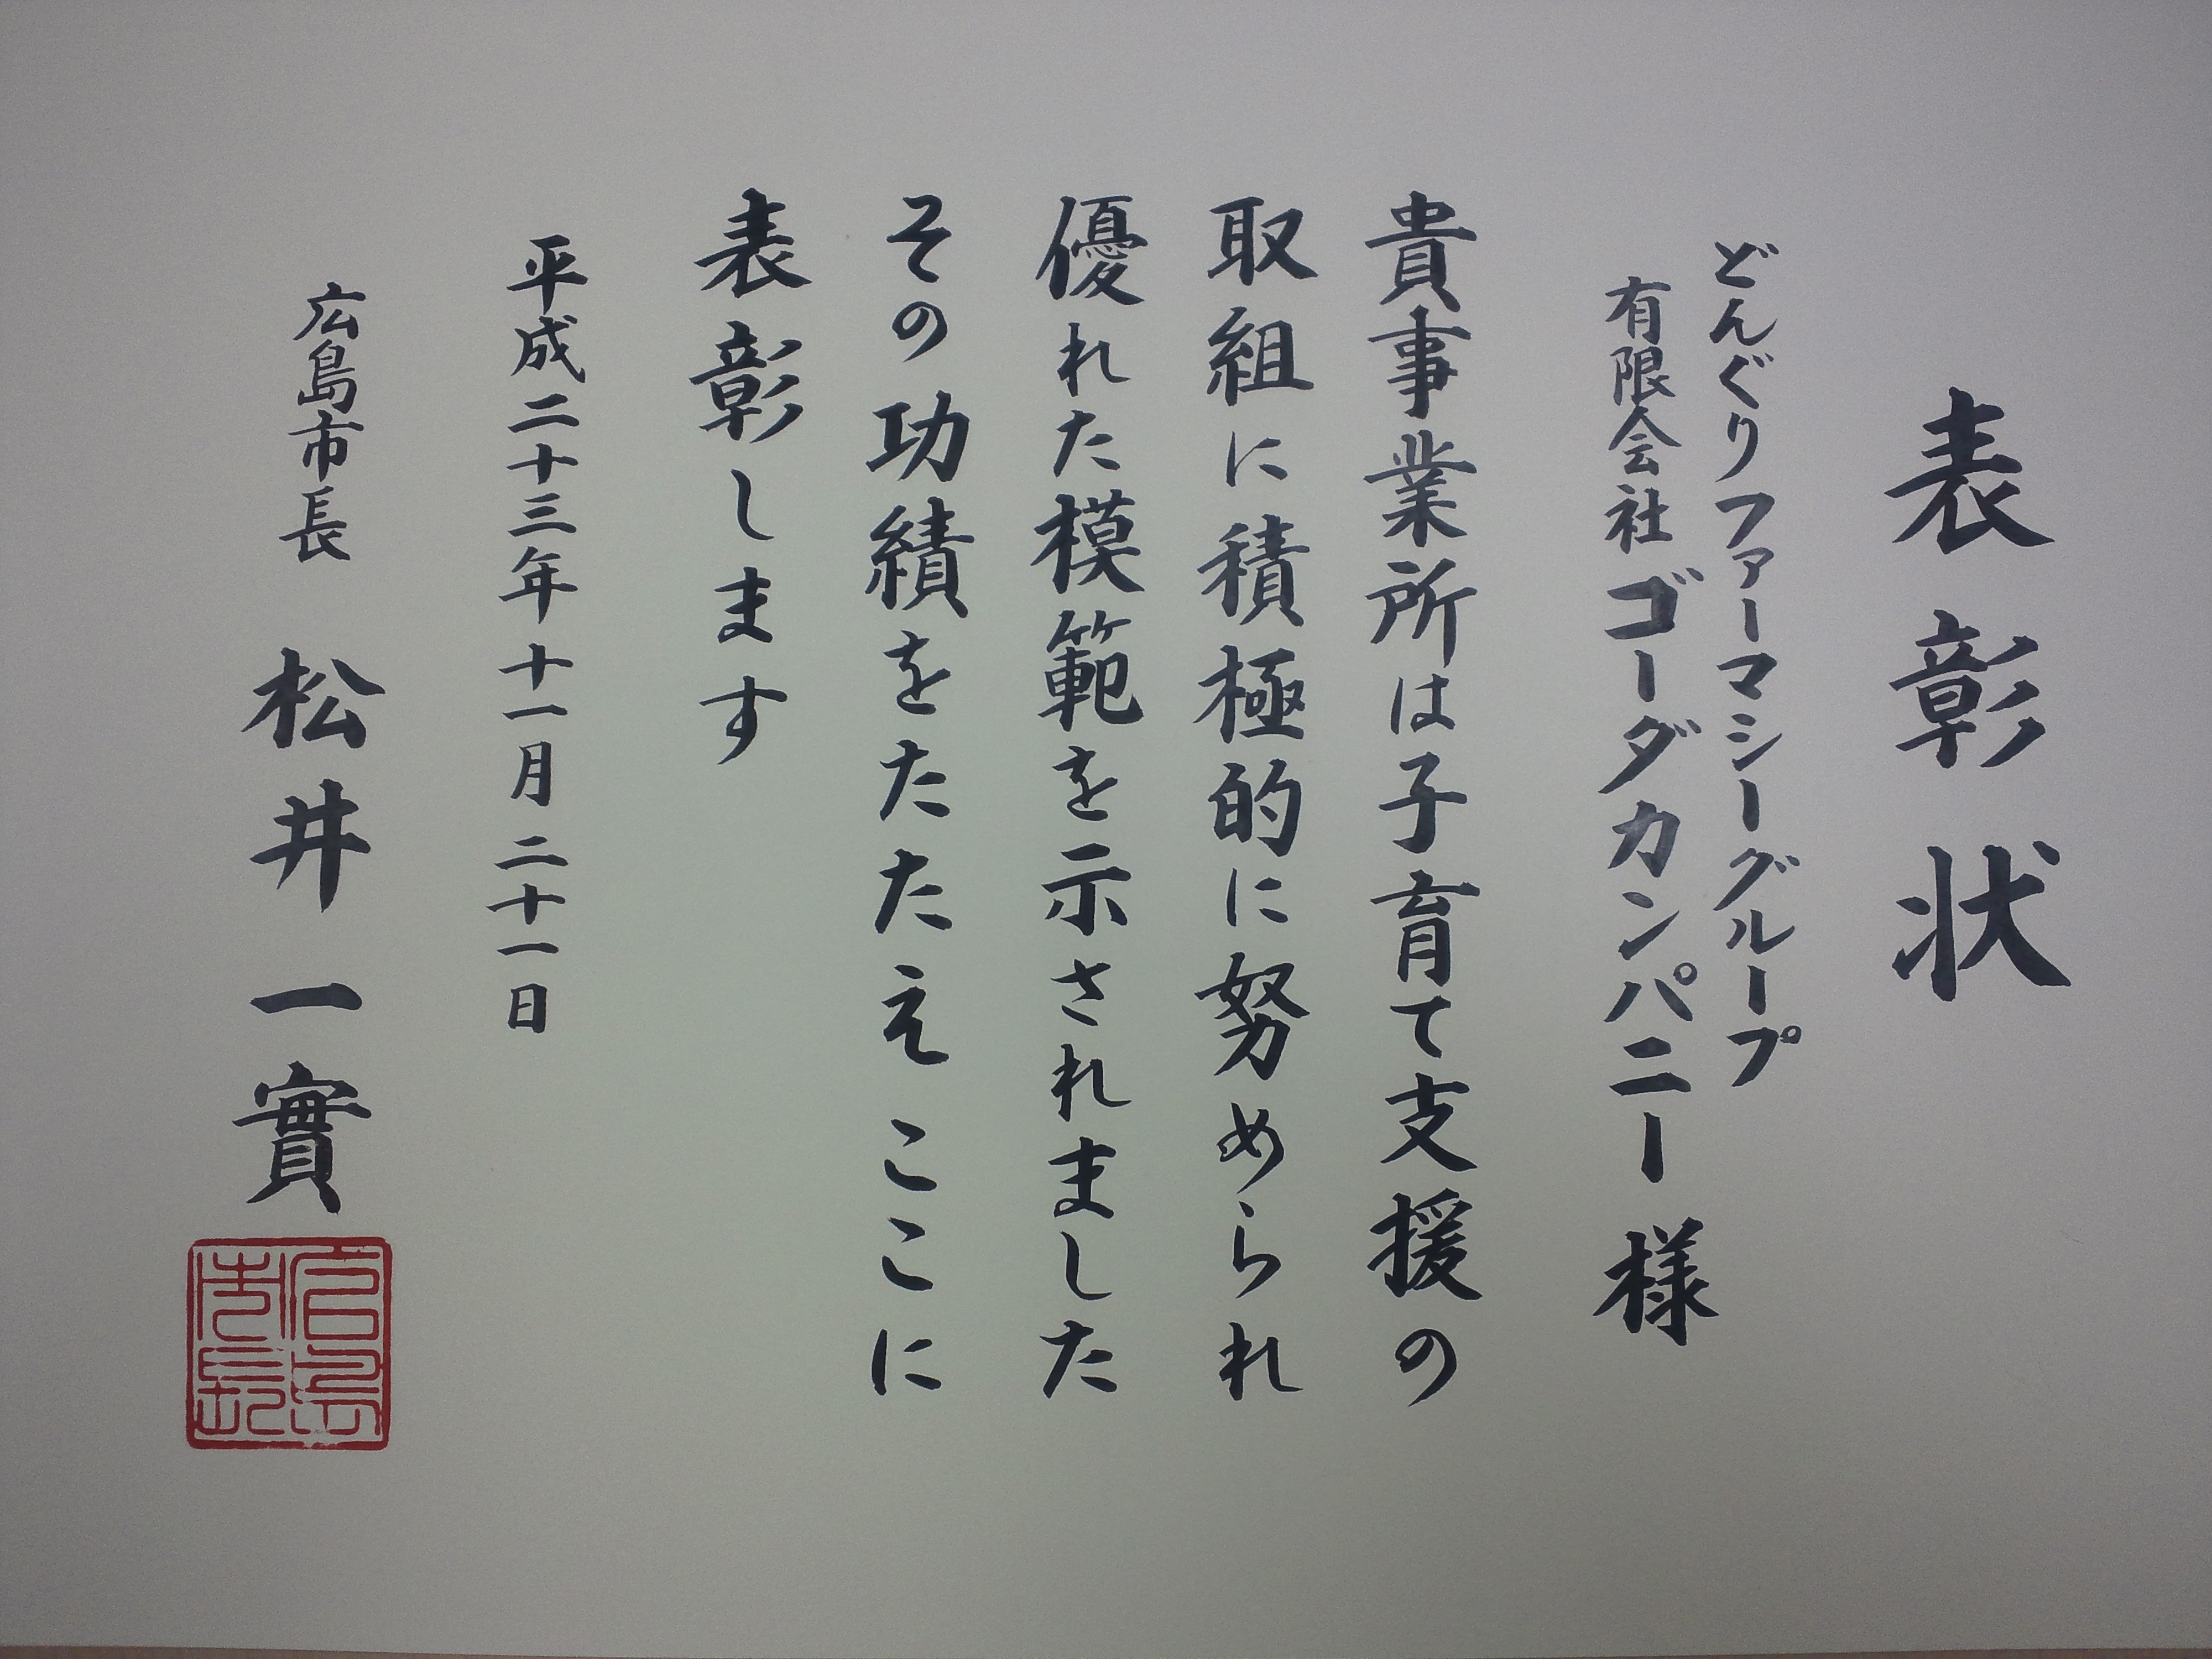 表彰状
どんぐりファーマシーグループ
有限会社ゴーダカンパニー 様
貴事業所は子育て支援の
取組に積極的に努められ
優れた模範を示されました
その功績をたたえここに
表彰します
平成二十三年十一月二十一日
広島市長 松井一實